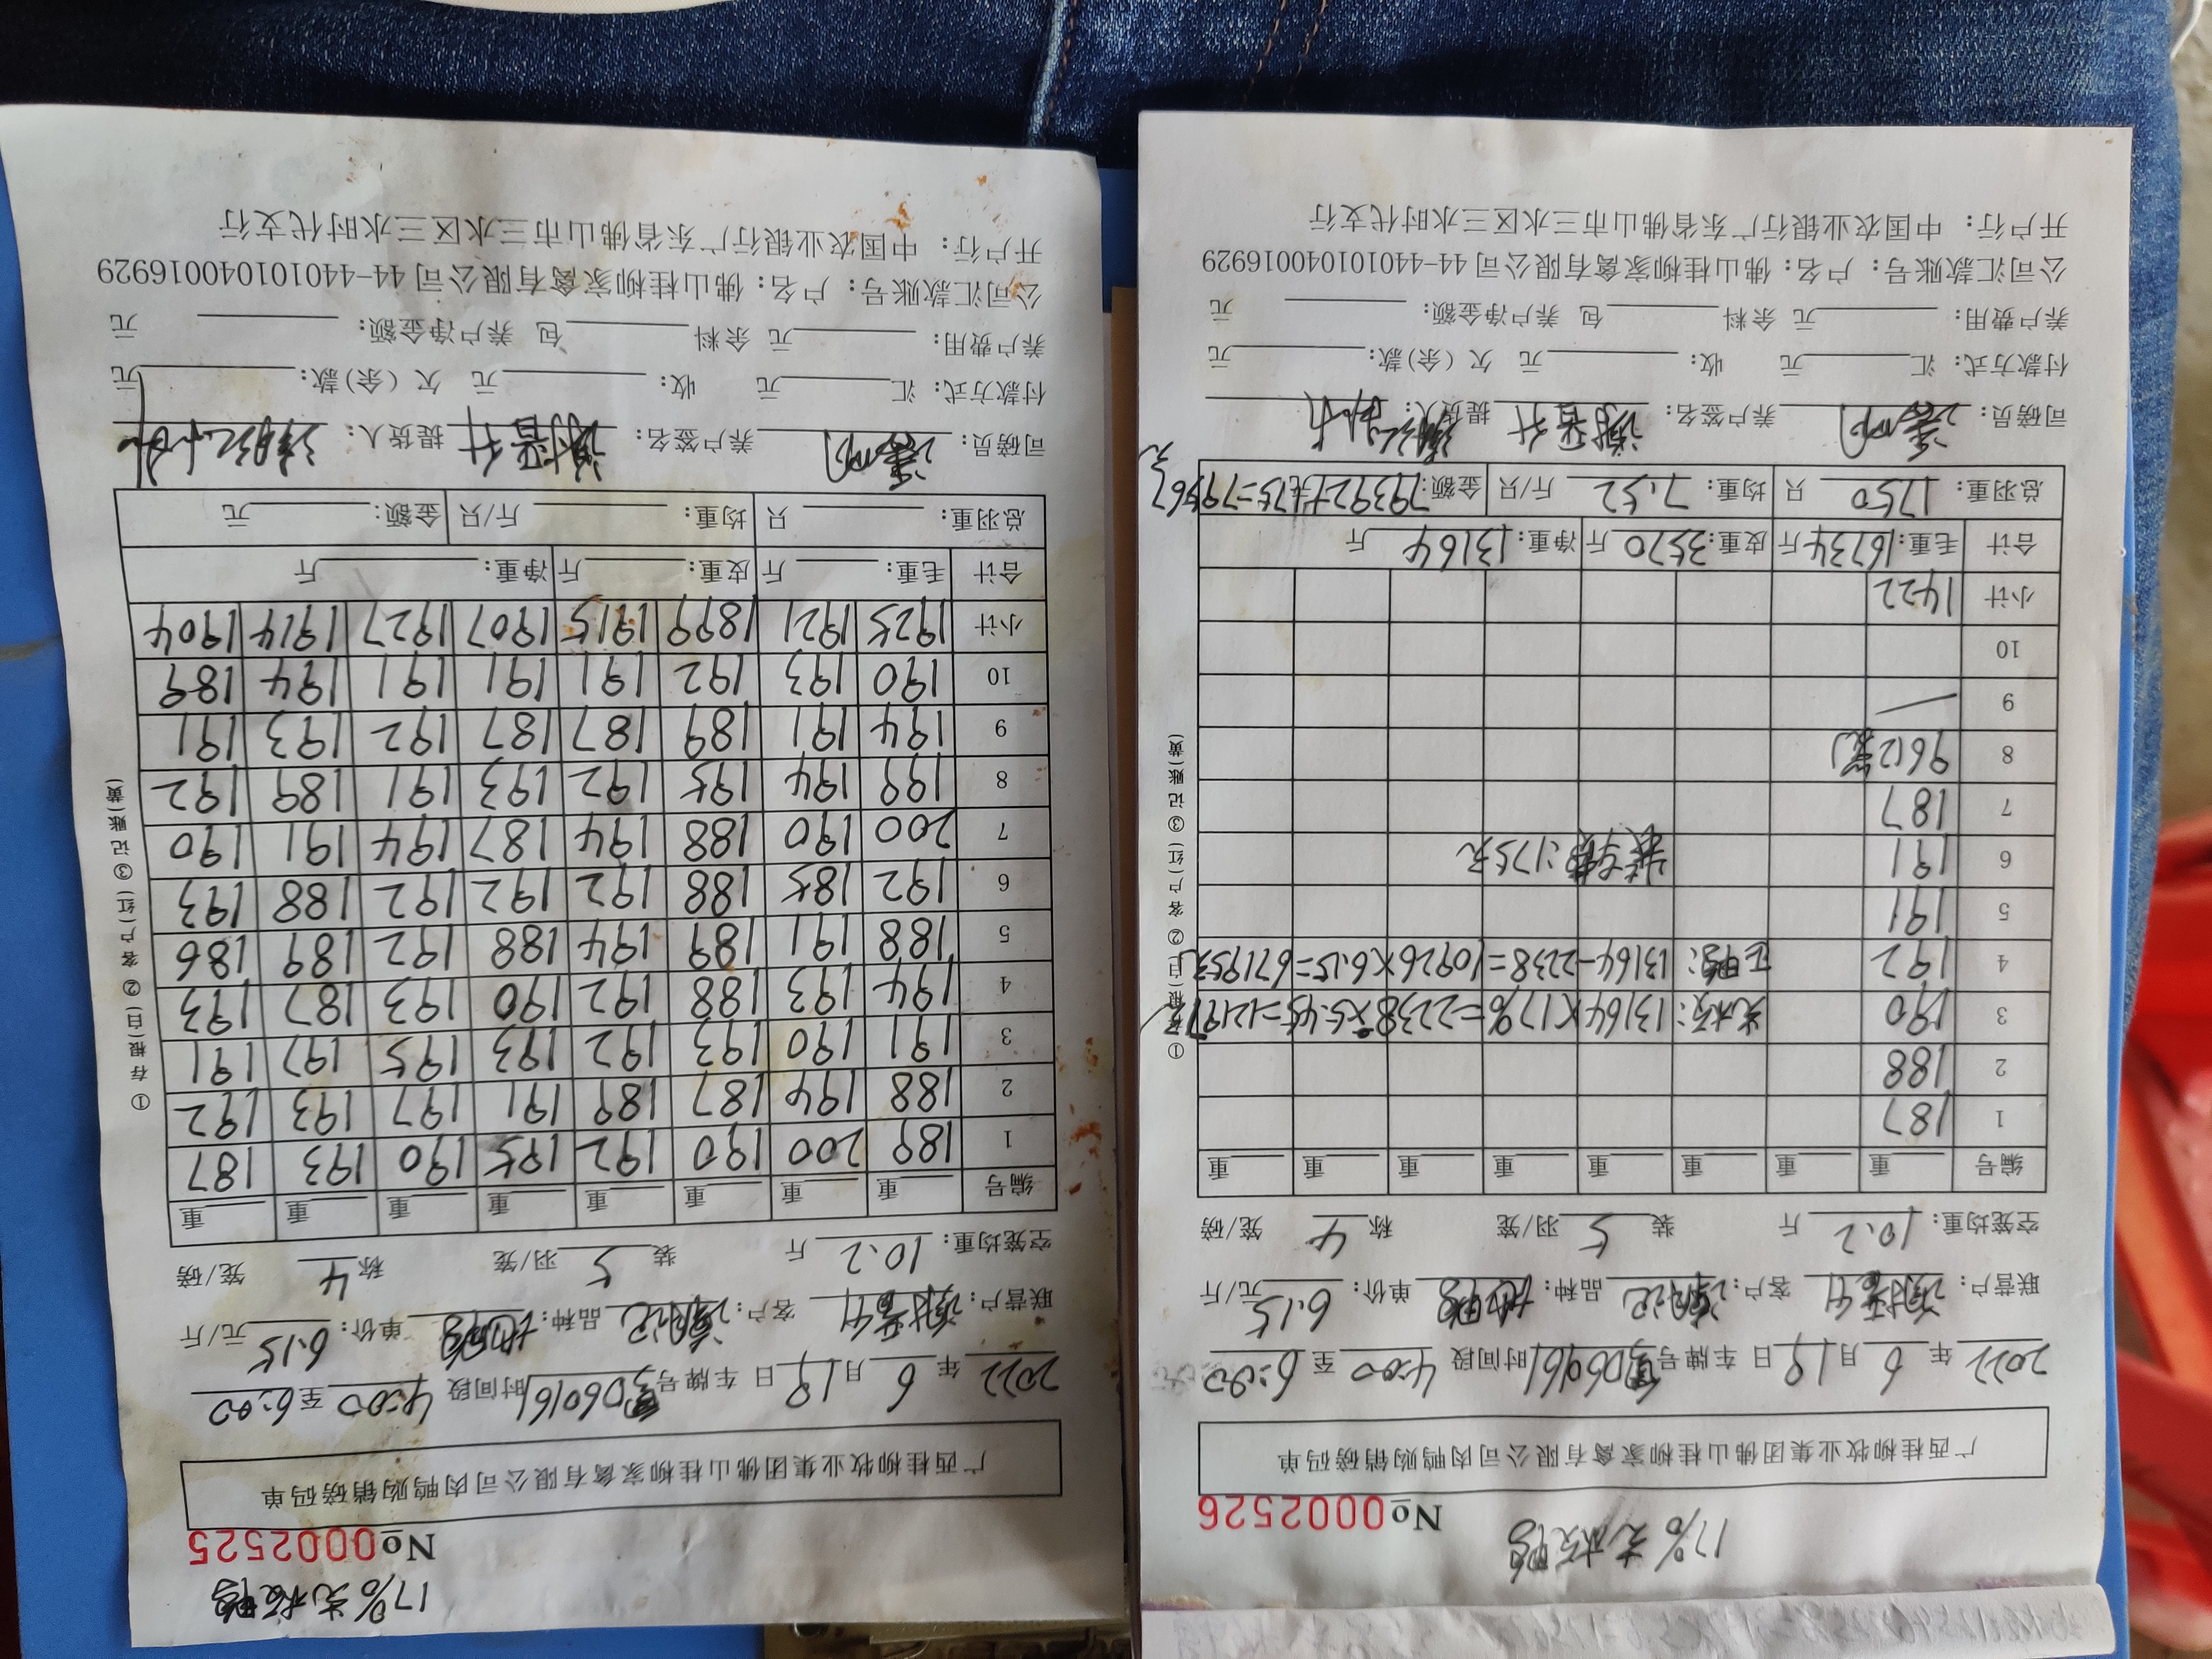 17%光板鸭
№0002526
广西桂柳牧业集团佛山桂柳家禽有限公司肉鸭购销磅码单
2022 年 6 月 19 日 车牌号 粤D60161 时间段 4:00 至 6:00
联营户: 客户: 品种: 单价: 6.15 元/斤
空笼均重: 10.2 斤 装 5 羽/笼 称 4 笼/磅
编号 重 重 重 重 重 重 重 重
1 187
2 188
3 190 光板: 13164×17%=2238×5.45=12197元
4 192 正鸭: 13164-2238=10926×6.15=67195元
5 191
6 191 :175元
7 187
8 96(2笼)
9
10
小计 1422
合计 毛重: 16734 斤 皮重: 3570 斤 净重: 13164 斤
总羽重: 1750 只 均重: 7.52 斤/只 金额: 79392+175=79567元
司磅员: 养户签名: 提货人:
付款方式: 汇 元 收: 元 欠(余)款: 元
养户费用: 元 余料 包 养户净金额: 元
公司汇款账号: 户名: 佛山桂柳家禽有限公司 44-440101040016929
开户行: 中国农业银行广东省佛山市三水区三水时代支行
①存根(白) ②客户(红) ③记账(黄)
17%光板鸭
№0002525
广西桂柳牧业集团佛山桂柳家禽有限公司肉鸭购销磅码单
2022 年 6 月 19 日 车牌号 粤D60161 时间段 4:00 至 6:00
联营户: 客户: 品种: 单价: 6.15 元/斤
空笼均重: 10.2 斤 装 5 羽/笼 称 4 笼/磅
编号 重 重 重 重 重 重 重 重
1 189 200 190 192 195 190 193 187
2 188 194 187 189 191 197 193 192
3 191 190 193 192 193 195 197 191
4 194 193 188 192 190 193 187 193
5 188 191 189 194 188 192 189 186
6 192 185 188 192 192 192 188 193
7 200 190 188 194 187 194 191 190
8 199 194 195 192 193 191 189 192
9 194 191 189 187 187 192 193 191
10 190 193 192 191 191 191 194 189
小计 1925 1921 1899 1915 1907 1927 1914 1904
合计 毛重: 斤 皮重: 斤 净重: 斤
总羽重: 只 均重: 斤/只 金额: 元
司磅员: 养户签名: 提货人:
付款方式: 汇 元 收: 元 欠(余)款: 元
养户费用: 元 余料 包 养户净金额: 元
公司汇款账号: 户名: 佛山桂柳家禽有限公司 44-440101040016929
开户行: 中国农业银行广东省佛山市三水区三水时代支行
①存根(白) ②客户(红) ③记账(黄)